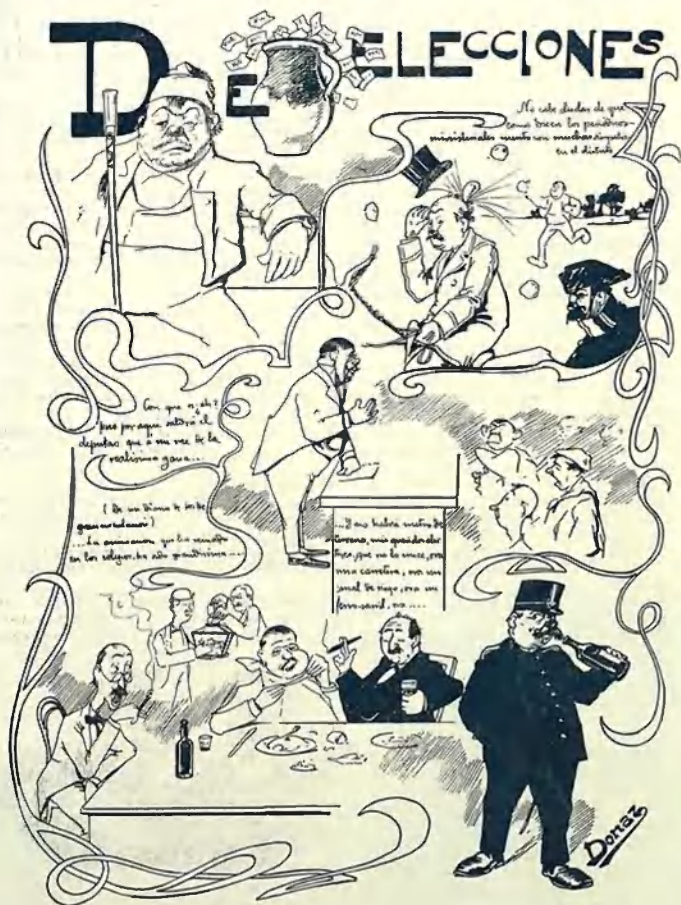 DE ELECCIONES
No cabe dudas de que
como dicen los periódicos
ministeriales cuento con muchas simpatías
en el distrito
Con que si, eh?
pues por aquí saldrá el
diputao que á mi me dé la
realísima gana...
(De un diario de los de
gran circulación)
...La animación que ha reinado
en los colegios, ha sido grandísima....
...Y no habrá metro de
terreno, mis queridos electores,
que no lo cruce, ora
una carretera, ora un
canal de riego, ora un
ferro-carril, ora....
Donaz